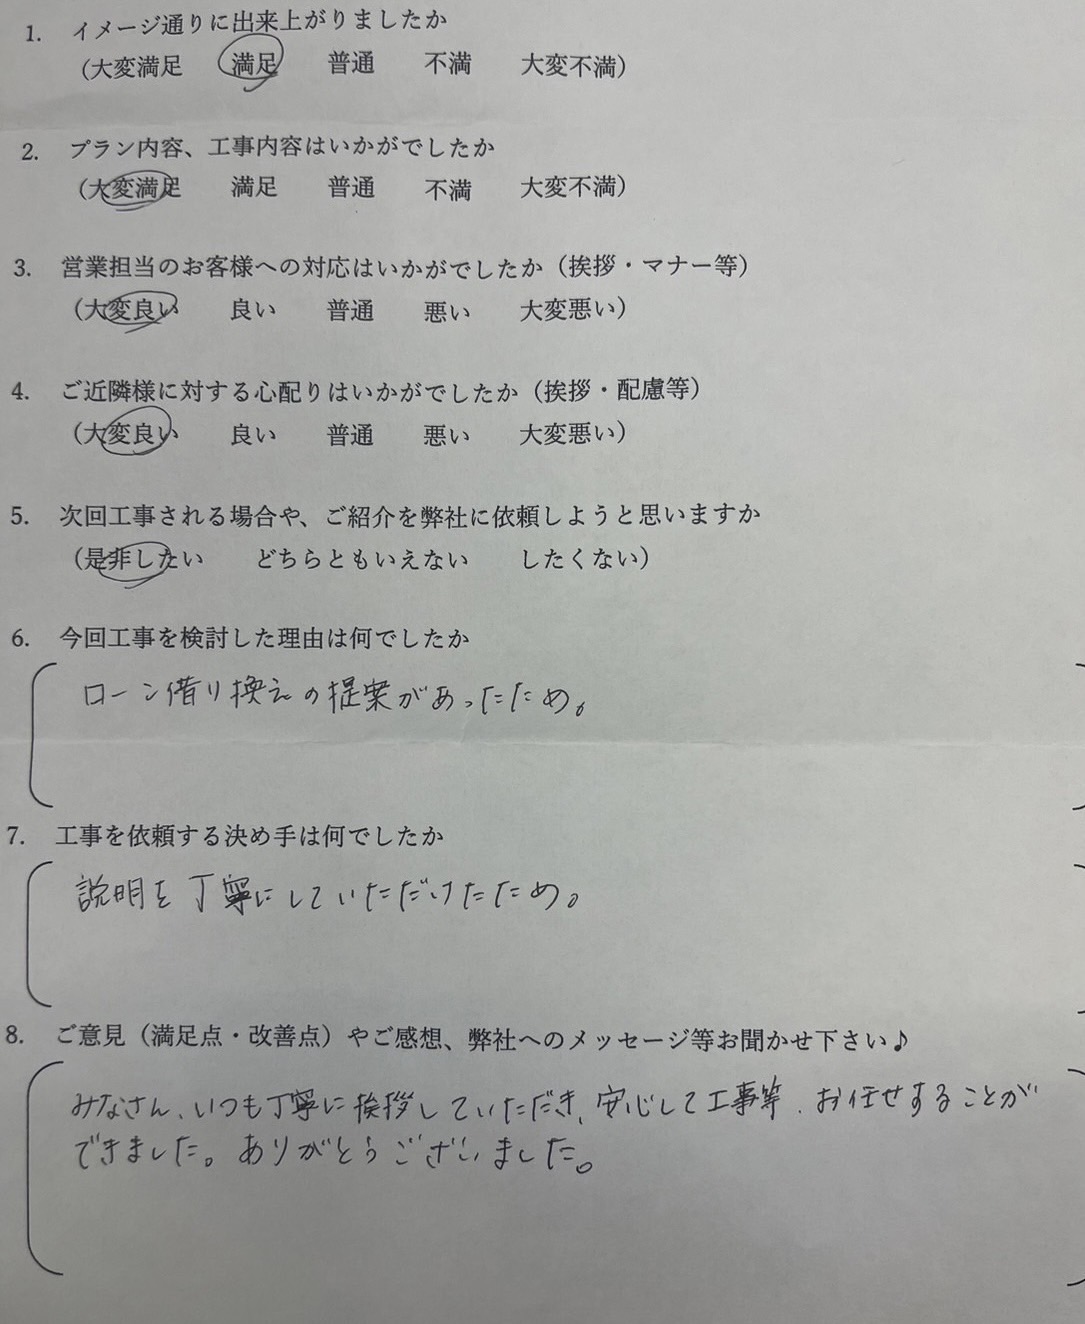 1. イメージ通りに出来上がりましたか
(大変満足 満足 普通 不満 大変不満)
2. プラン内容、工事内容はいかがでしたか
(大変満足 満足 普通 不満 大変不満)
3. 営業担当のお客様への対応はいかがでしたか（挨拶・マナー等）
(大変良い 良い 普通 悪い 大変悪い)
4. ご近隣様に対する心配りはいかがでしたか（挨拶・配慮等）
(大変良い 良い 普通 悪い 大変悪い)
5. 次回工事される場合や、ご紹介を弊社に依頼しようと思いますか
(是非したい どちらともいえない したくない)
6. 今回工事を検討した理由は何でしたか
ローン借り換えの提案があったため。
7. 工事を依頼する決め手は何でしたか
説明を丁寧にしていただけたため。
8. ご意見（満足点・改善点）やご感想、弊社へのメッセージ等お聞かせ下さい♪
みなさん、いつも丁寧に挨拶していただき、安心して工事等、お任せすることが
できました。ありがとうございました。